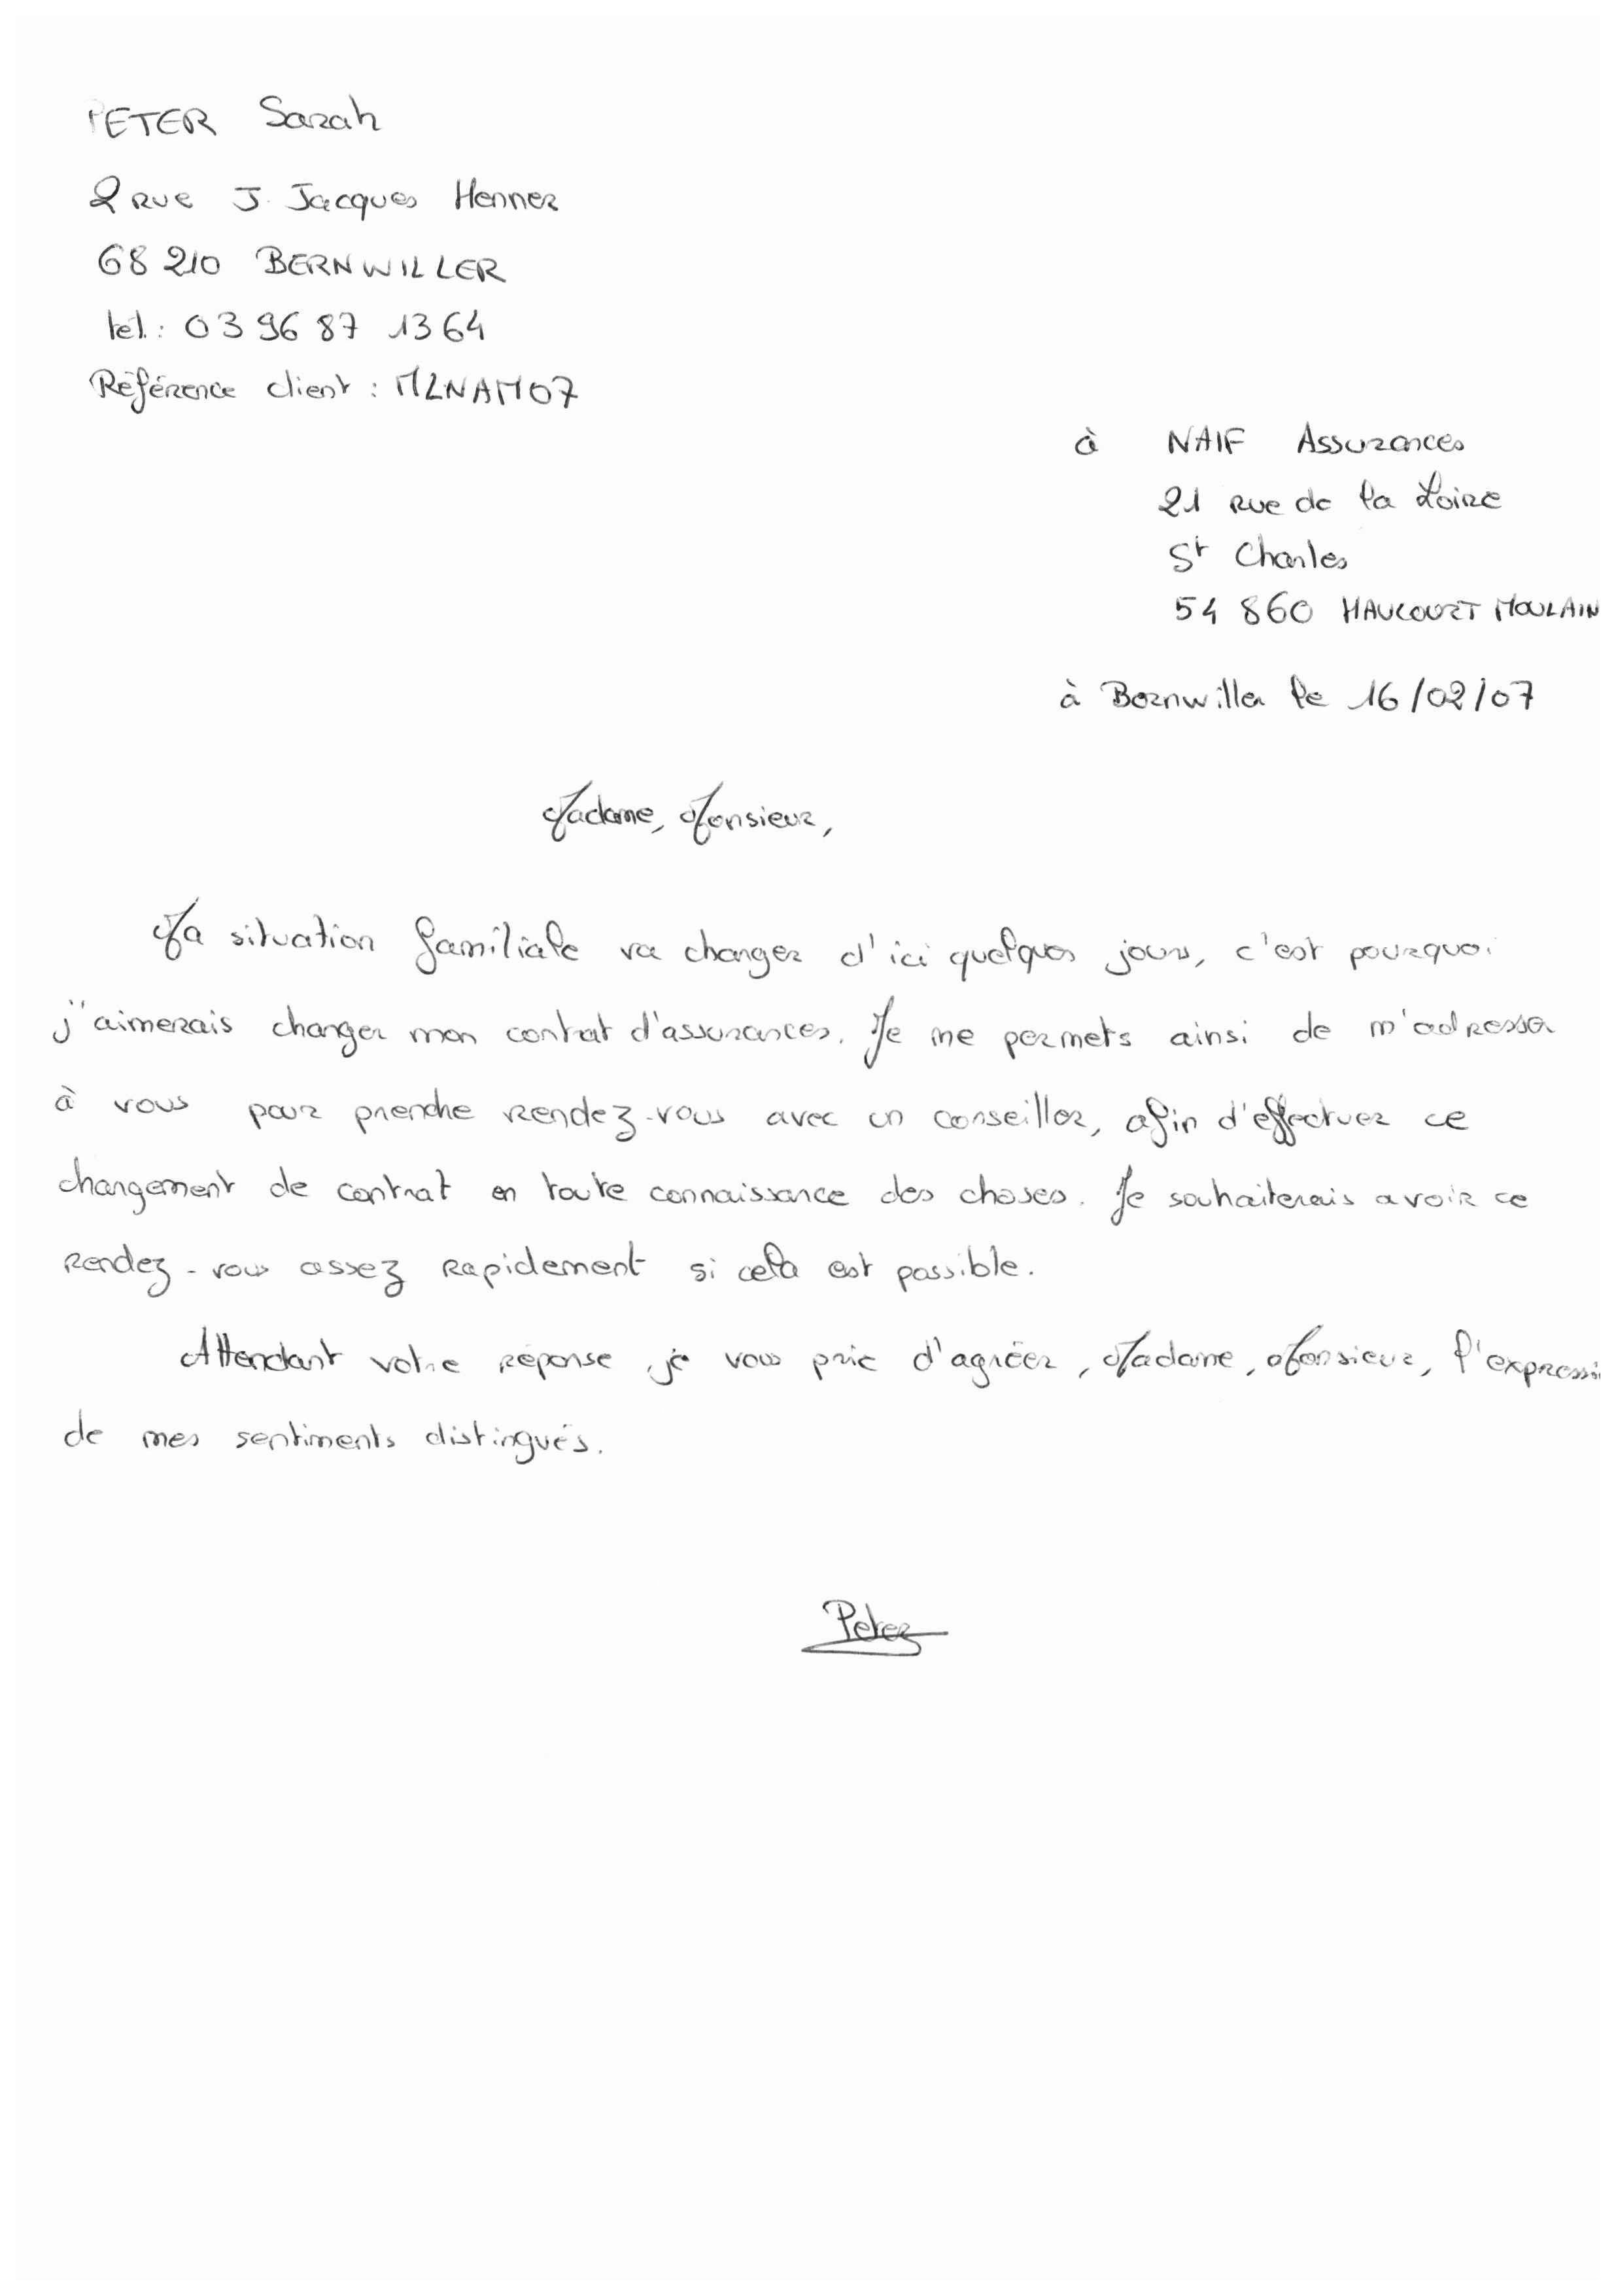 PETER Sarah
2 rue J. Jacques Henner
68 210 BERNWILLER
tél.: 03 96 87 13 64
Référence client : MLNAM07
à NAIF Assurances
21 rue de la Loire
St Charles
54 860 HAUCOURT MOULAIN
à Bernwiller le 16/02/07
Madame, Monsieur,
Ma situation familiale va changer d'ici quelques jours, c'est pourquoi
j'aimerais changer mon contrat d'assurances. Je me permets ainsi de m'adresser
à vous pour prendre rendez-vous avec un conseiller, afin d'effectuer ce
changement de contrat en toute connaissance des choses. Je souhaiterais avoir ce
rendez-vous assez rapidement si cela est possible.
Attendant votre réponse, je vous prie d'agréer, Madame, Monsieur, l'expressi
de mes sentiments distingués.
Peter